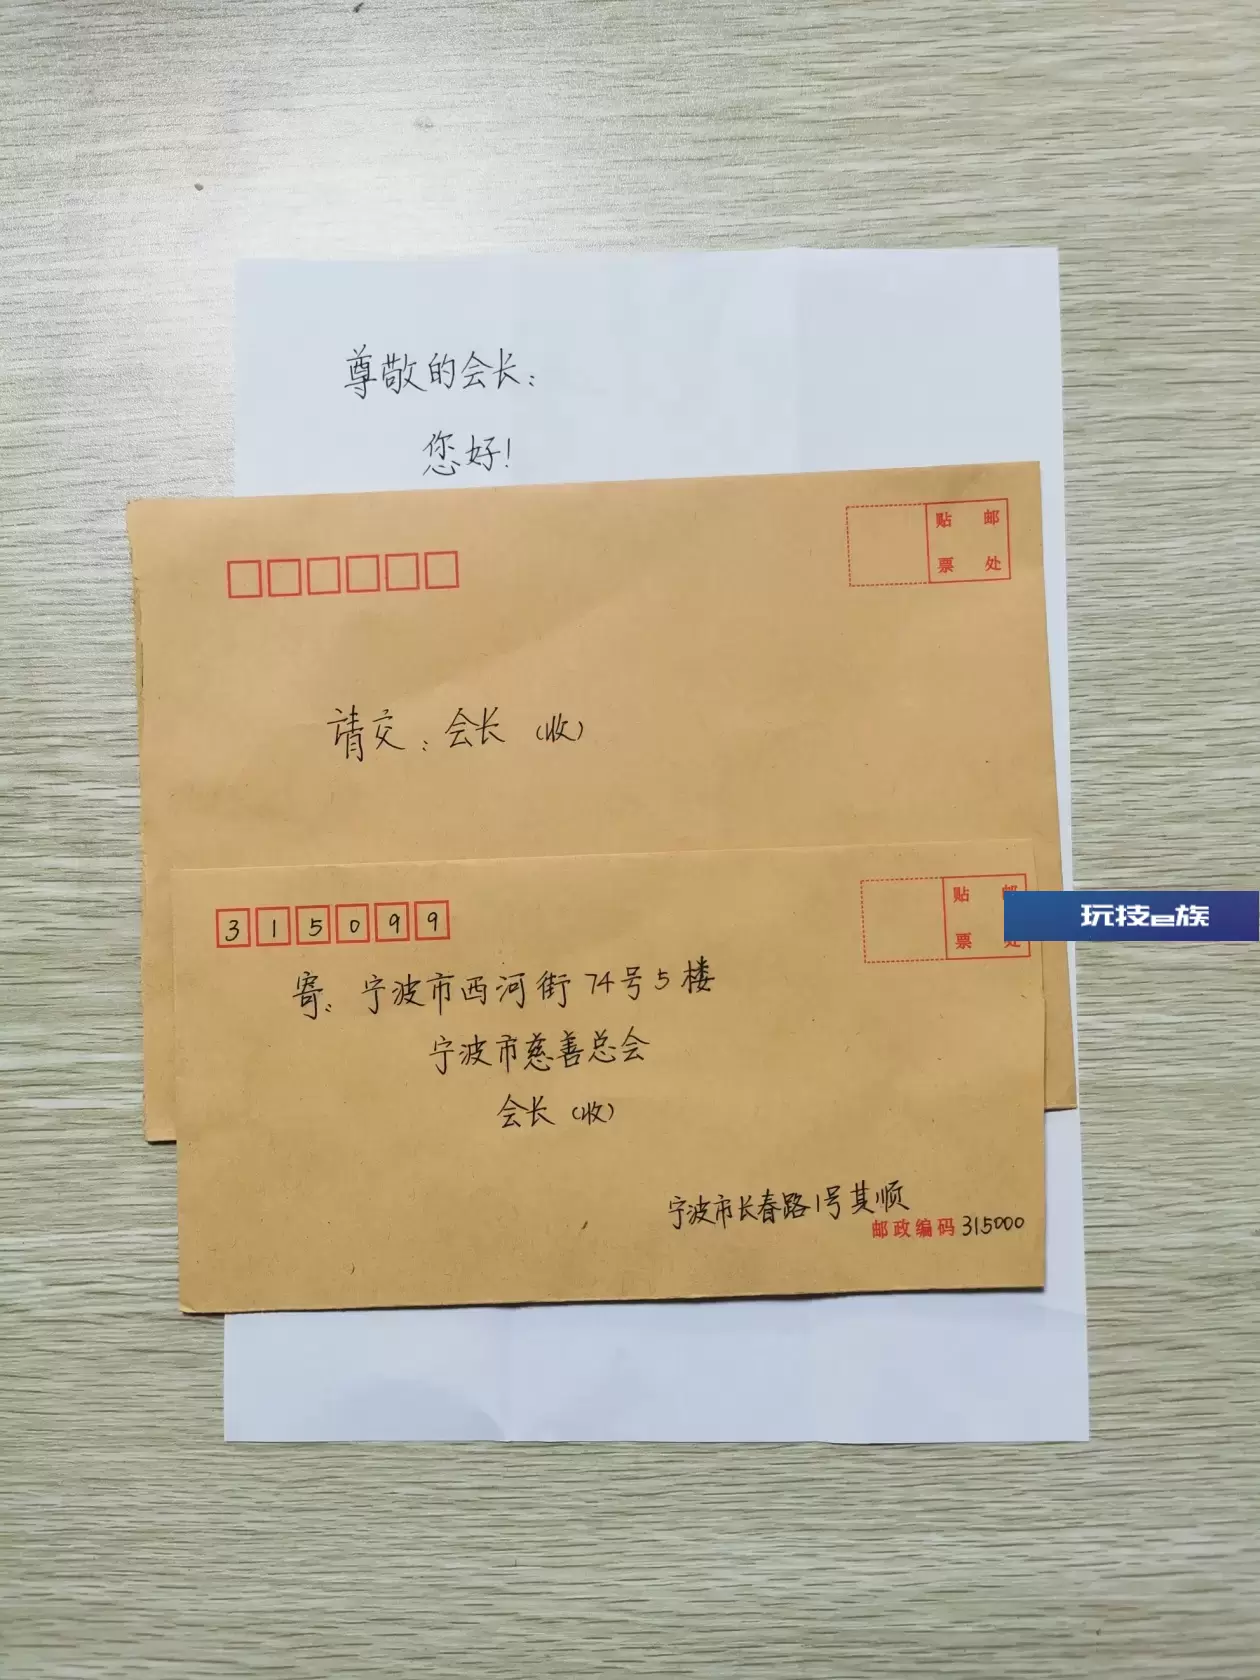 尊敬的会长：
您好！
贴 邮
票 处
请交：会长（收）
315099
贴 邮
票 处
玩技e族
寄：宁波市西河街74号5楼
宁波市慈善总会
会长（收）
宁波市长春路1号其顺
邮政编码315000